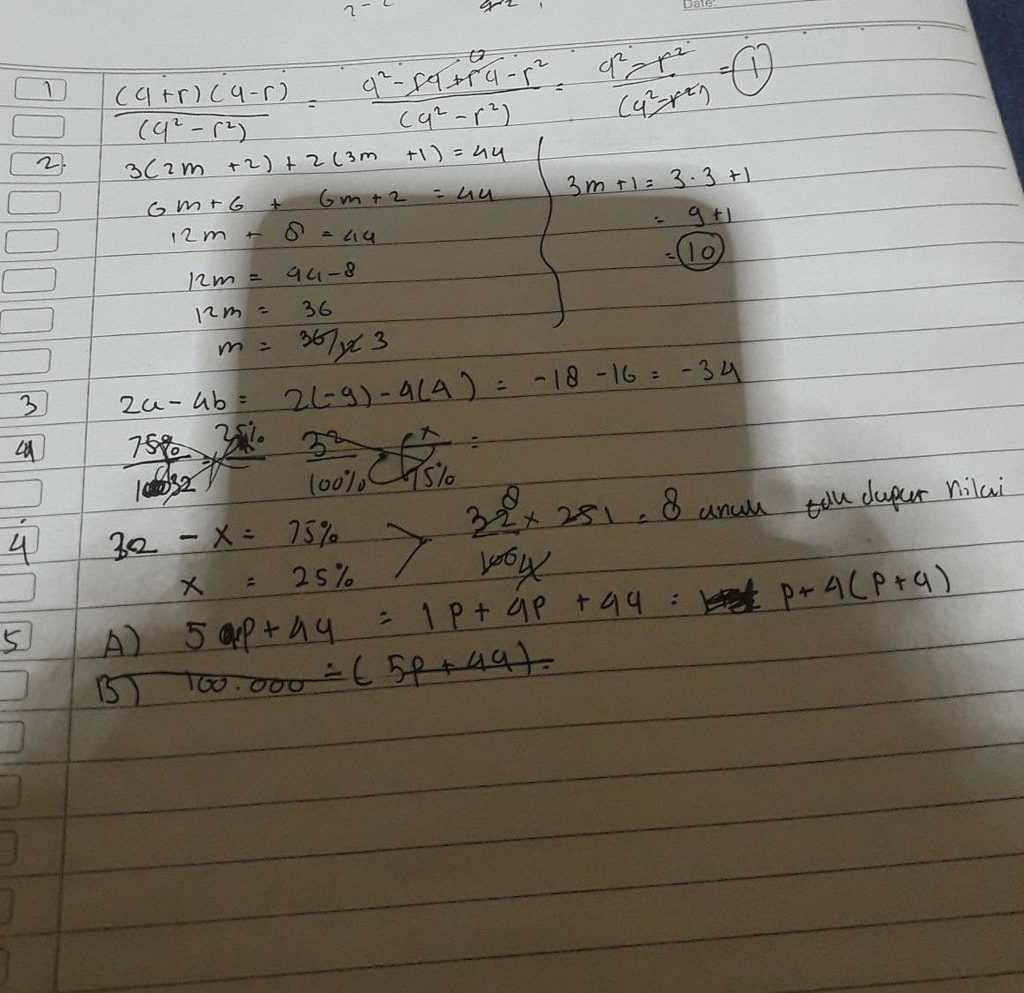 Date:
1 (q+r)(q-r) / (q² - r²) = q² - rq + rq - r² / (q² - r²) = q² - r² / (q² - r²) = 1
2. 3(2m + 2) + 2(3m + 1) = 44
6m + 6 + 6m + 2 = 44
12m + 8 = 44
12m = 44 - 8
12m = 36
m = 36/12 3
3m + 1 = 3 · 3 + 1
= 9 + 1
= 10
3 2a - 4b = 2(-9) - 4(4) = -18 - 16 = -34
4 75% 25% 32 / 100% x / 75% =
4 32 - x = 75%
x = 25%
32 8 × 251 / 100 4 = 8 anak dapat nilai
5 A) 5p + 4q = 1p + 4p + 4q = p + 4(p + q)
B) 100.000 = (5p + 4q) =